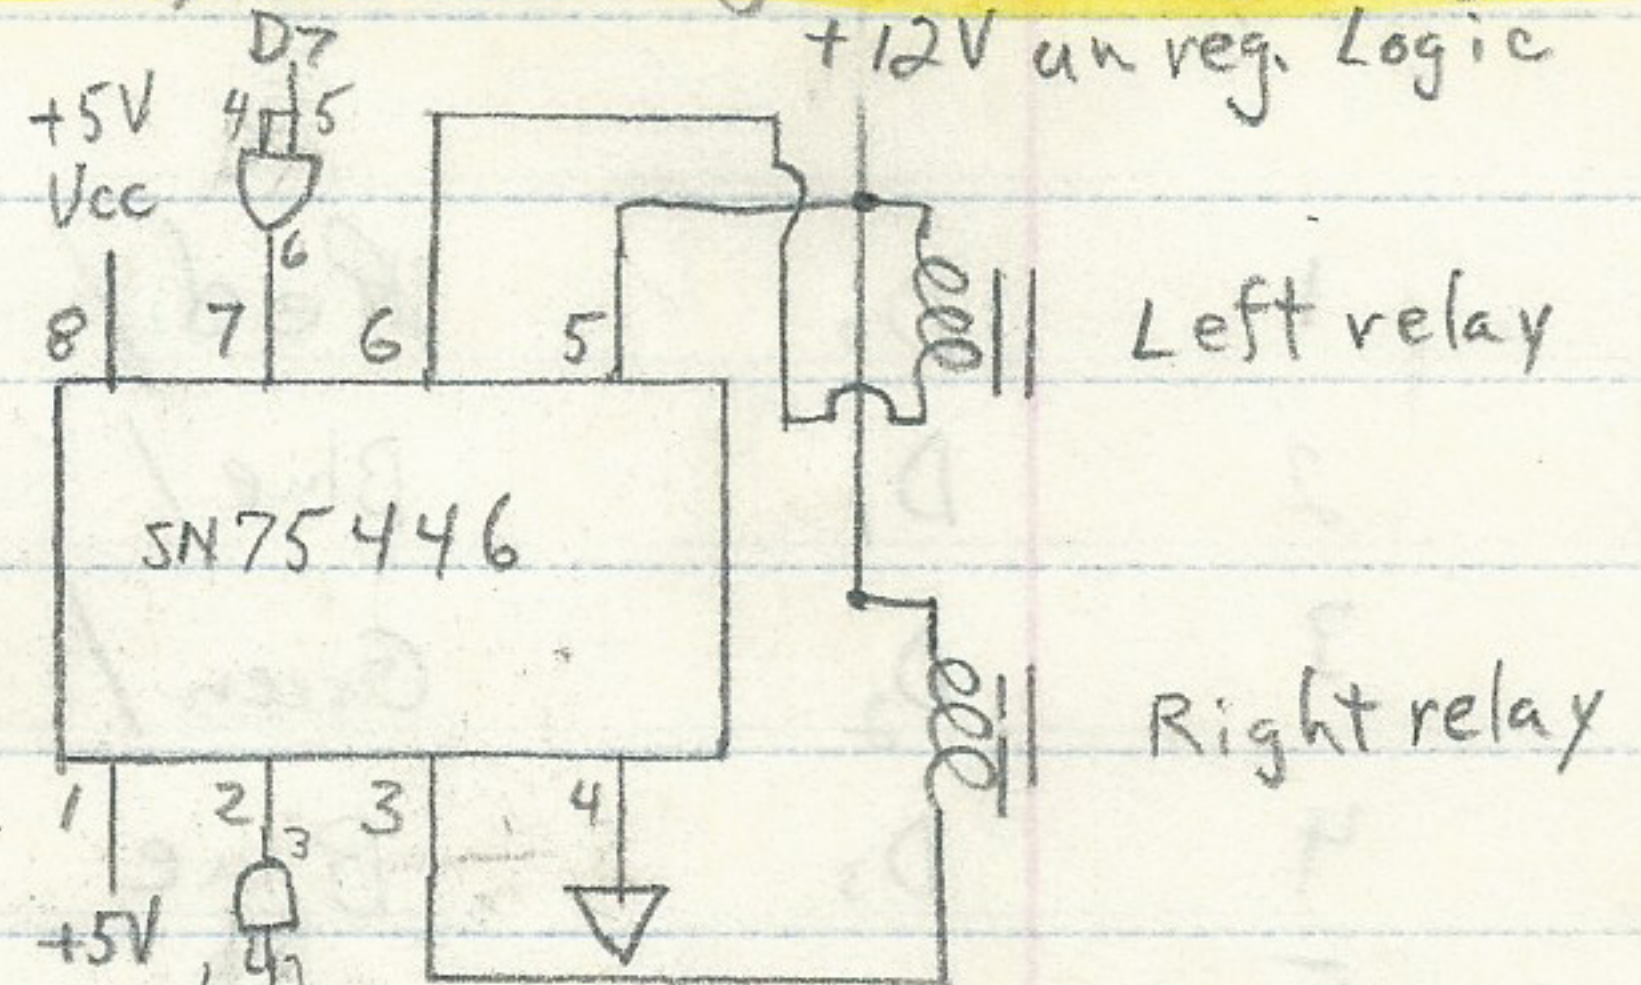 D7
+12V unreg. Logic
+5V
Vcc
4 5
6
8 7 6 5
Left relay
SN75446
Right relay
1 2 3 4
3
+5V